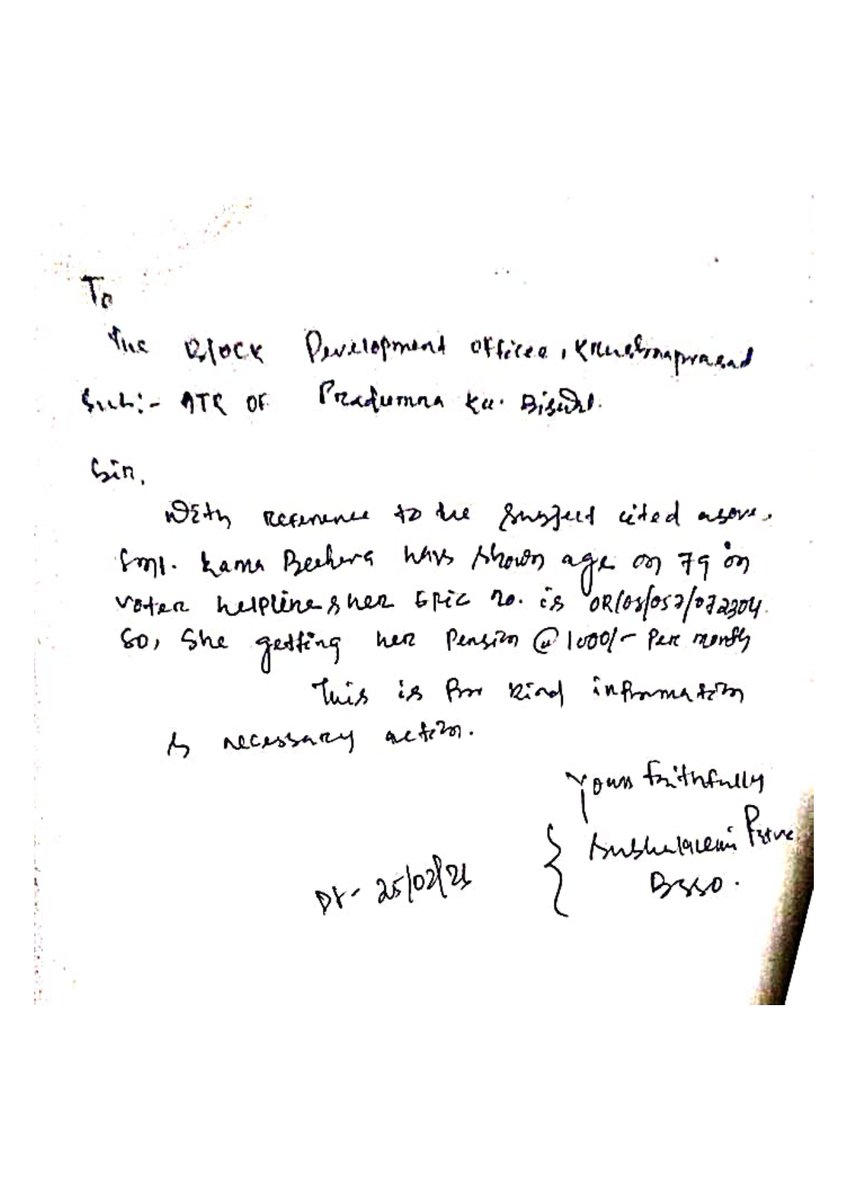 To
The Block Development Officer, Krushnaprasad
Sub:- ATR OF Pradumna Ku.
Sir,
With reference to the subject cited above.
Smt. Kama Behera has shown age on 79 on
voter helpline & her EPIC no. is OR/05/057/072304.
So, She getting her Pension @ 1000/- Per month
This is for kind information
& necessary action.
Yours faithfully
BSSO.
Dt-